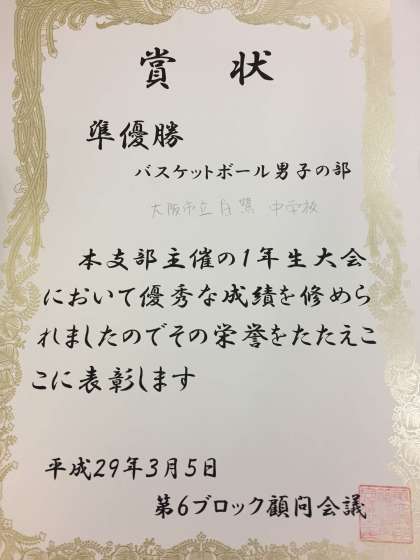 賞状
準優勝
バスケットボール男子の部
大阪市立白鷺中学校
本支部主催の1年生大会
において優秀な成績を修めら
れましたのでその栄誉をたたえこ
こに表彰します
平成29年3月5日
第6ブロック顧問会議